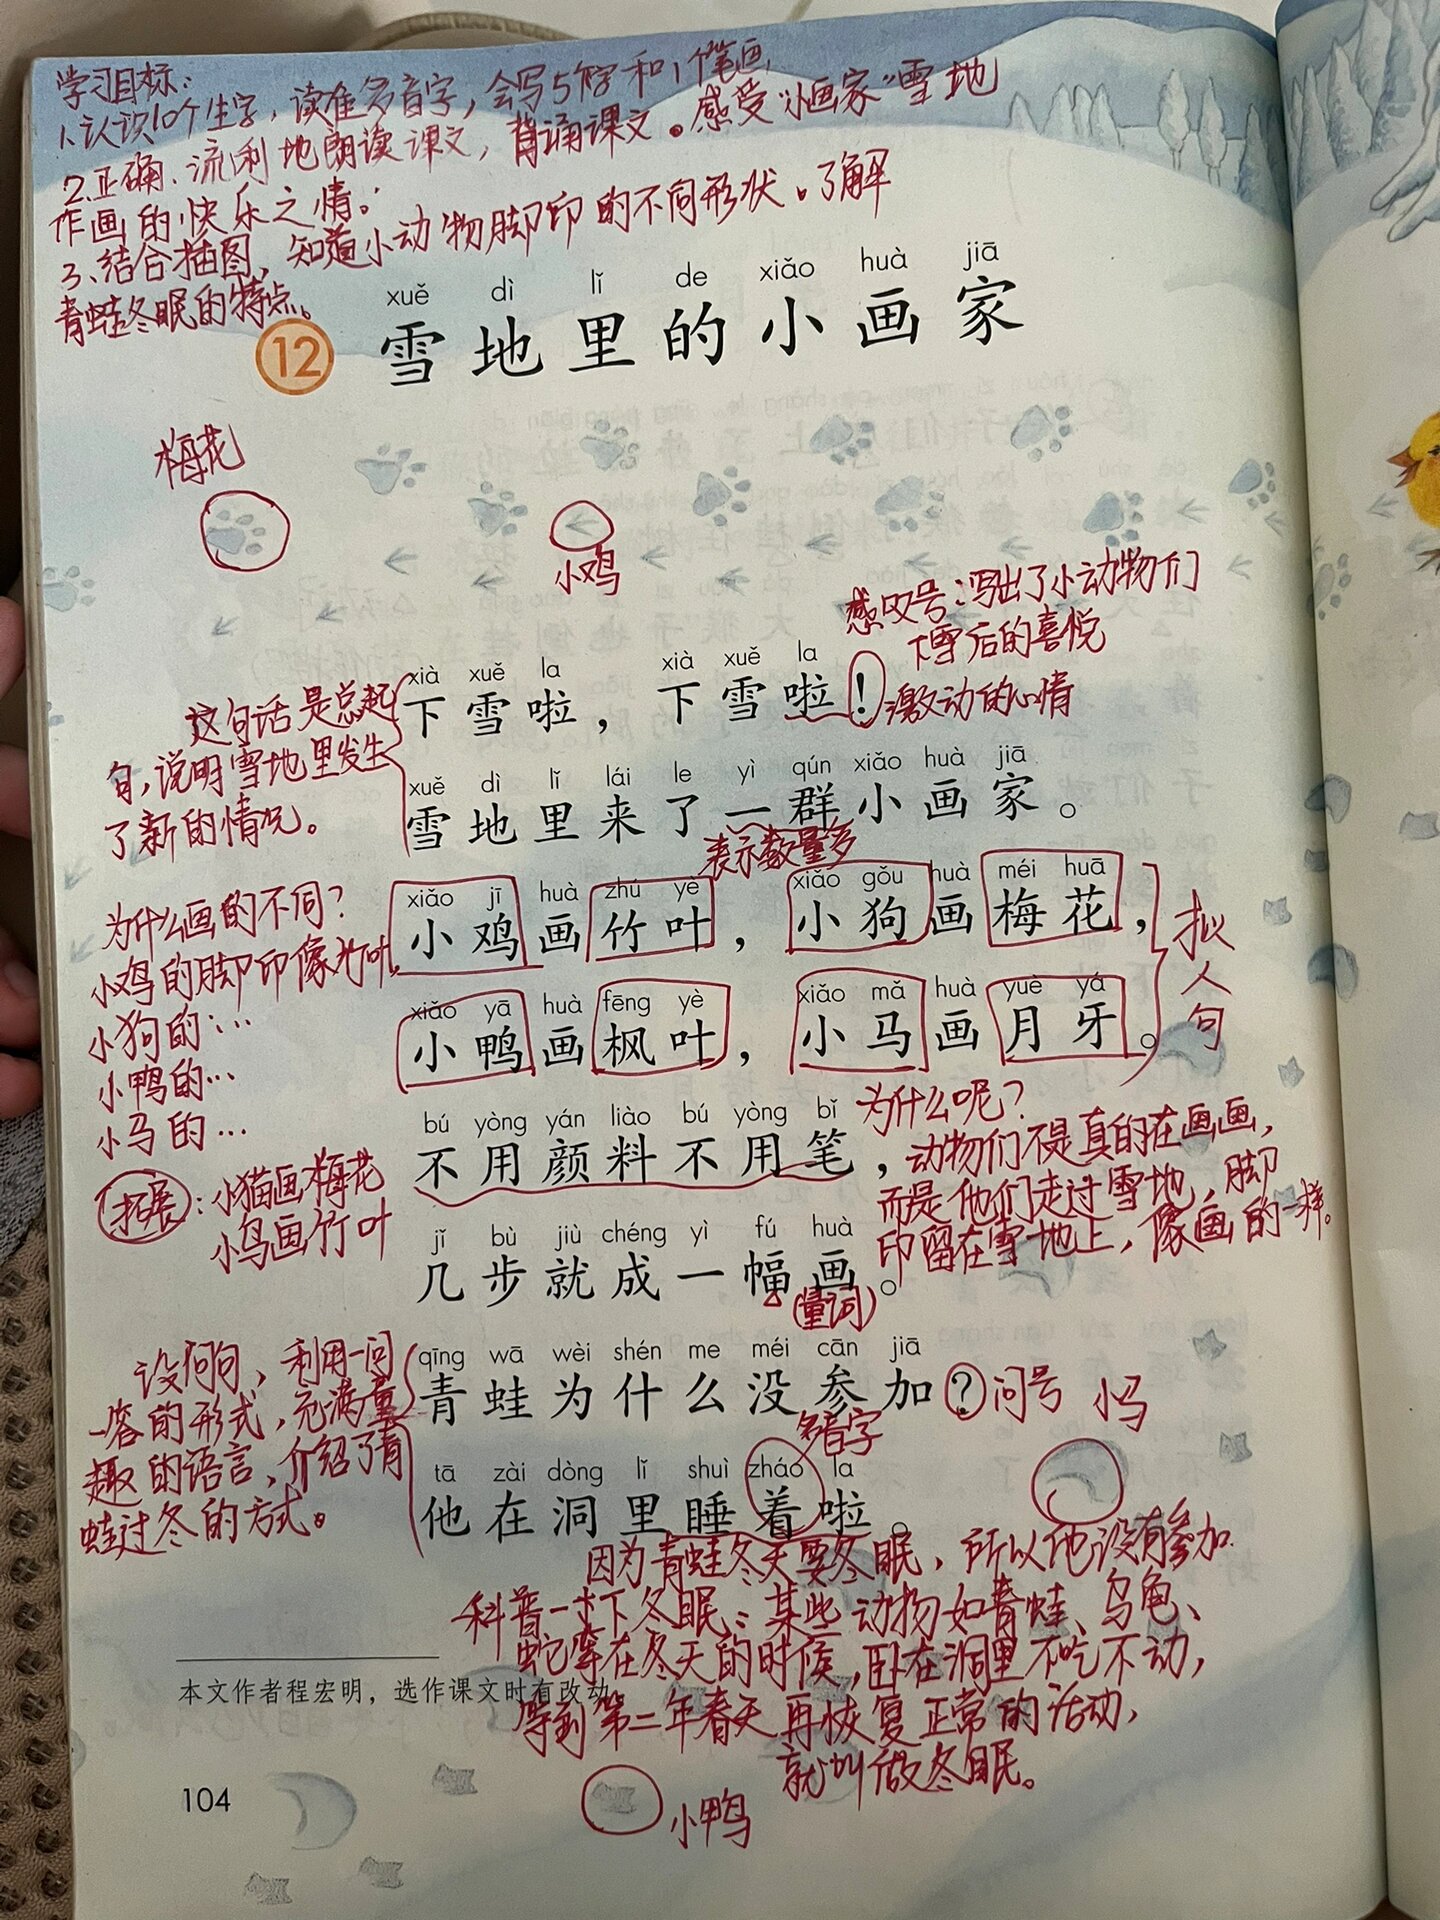 学习目标：
1.认识10个生字，读准多音字，会写5个字和1个笔画
2.正确、流利地朗读课文，背诵课文。感受"小画家"雪地
作画的快乐之情。
3、结合插图，知道小动物脚印的不同形状。了解
青蛙冬眠的特点。
xuě dì lǐ de xiǎo huà jiā
12 雪地里的小画家
梅花
小鸡
感叹号：写出了小动物们
下雪后的喜悦
激动的心情
这句话是总起
句，说明雪地里发生
了新的情况。
xià xuě la xià xuě la
下雪啦，下雪啦！
xuě dì lǐ lái le yì qún xiǎo huà jiā
雪地里来了一群小画家。
表示数量多
为什么画的不同？
小鸡的脚印像竹叶，
小狗的：…
小鸭的…
小马的…
xiǎo jī huà zhú yè xiǎo gǒu huà méi huā
小鸡画竹叶，小狗画梅花，
xiǎo yā huà fēng yè xiǎo mǎ huà yuè yá
小鸭画枫叶，小马画月牙。
拟人句
拓展：小猫画梅花
小鸟画竹叶
bú yòng yán liào bú yòng bǐ
不用颜料不用笔，
jǐ bù jiù chéng yì fú huà
几步就成一幅画。
(量词)
为什么呢？
动物们不是真的在画画，
而是他们走过雪地，脚
印留在雪地上，像画的一样。
设问句，利用一问
一答的形式，充满童
趣的语言，介绍了青
蛙过冬的方式。
qīng wā wèi shén me méi cān jiā
青蛙为什么没参加？
问号
小马
多音字
tā zài dòng lǐ shuì zháo la
他在洞里睡着啦。
因为青蛙冬天要冬眠，所以他没有参加.
科普一下冬眠：某些动物如青蛙、乌龟、
蛇等在冬天的时候，卧在洞里不吃不动，
等到第二年春天再恢复正常的活动，
就叫做冬眠。
本文作者程宏明，选作课文时有改动。
104
小鸭